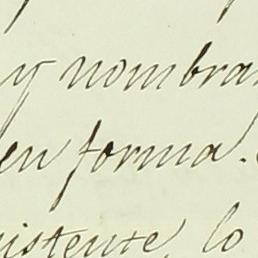 y nombra
en forma.
istente, lo